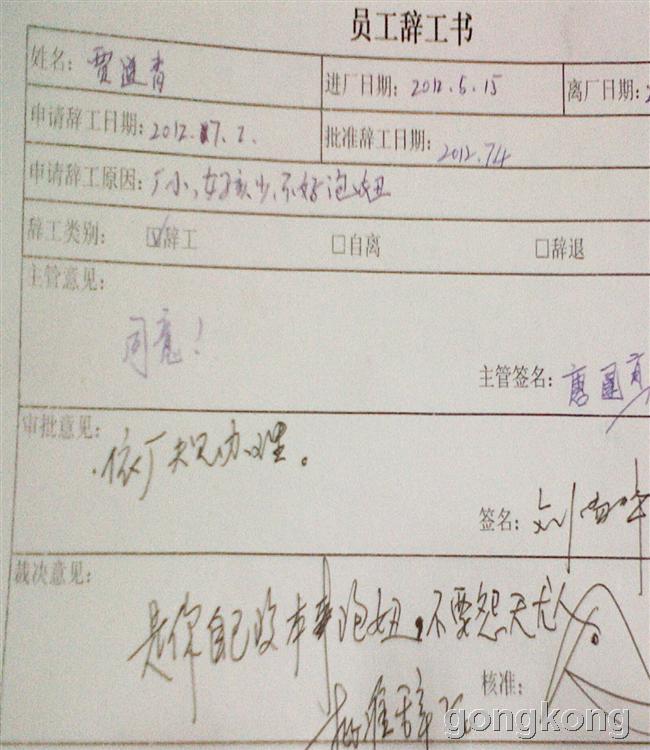 员工辞工书
姓名: 贾道青 进厂日期: 2012.5.15 离厂日期:
申请辞工日期: 2012.7.2. 批准辞工日期: 2012.7.4
申请辞工原因: 厂小,女孩少,不好泡妞
辞工类别: ☑辞工 □自离 □辞退
主管意见:
同意!
主管签名: 唐国
审批意见:
依厂规办理。
签名: 刘
裁决意见:
是你自己没本事泡妞,不要怨天尤人。
核准:
批准辞工
gongkong